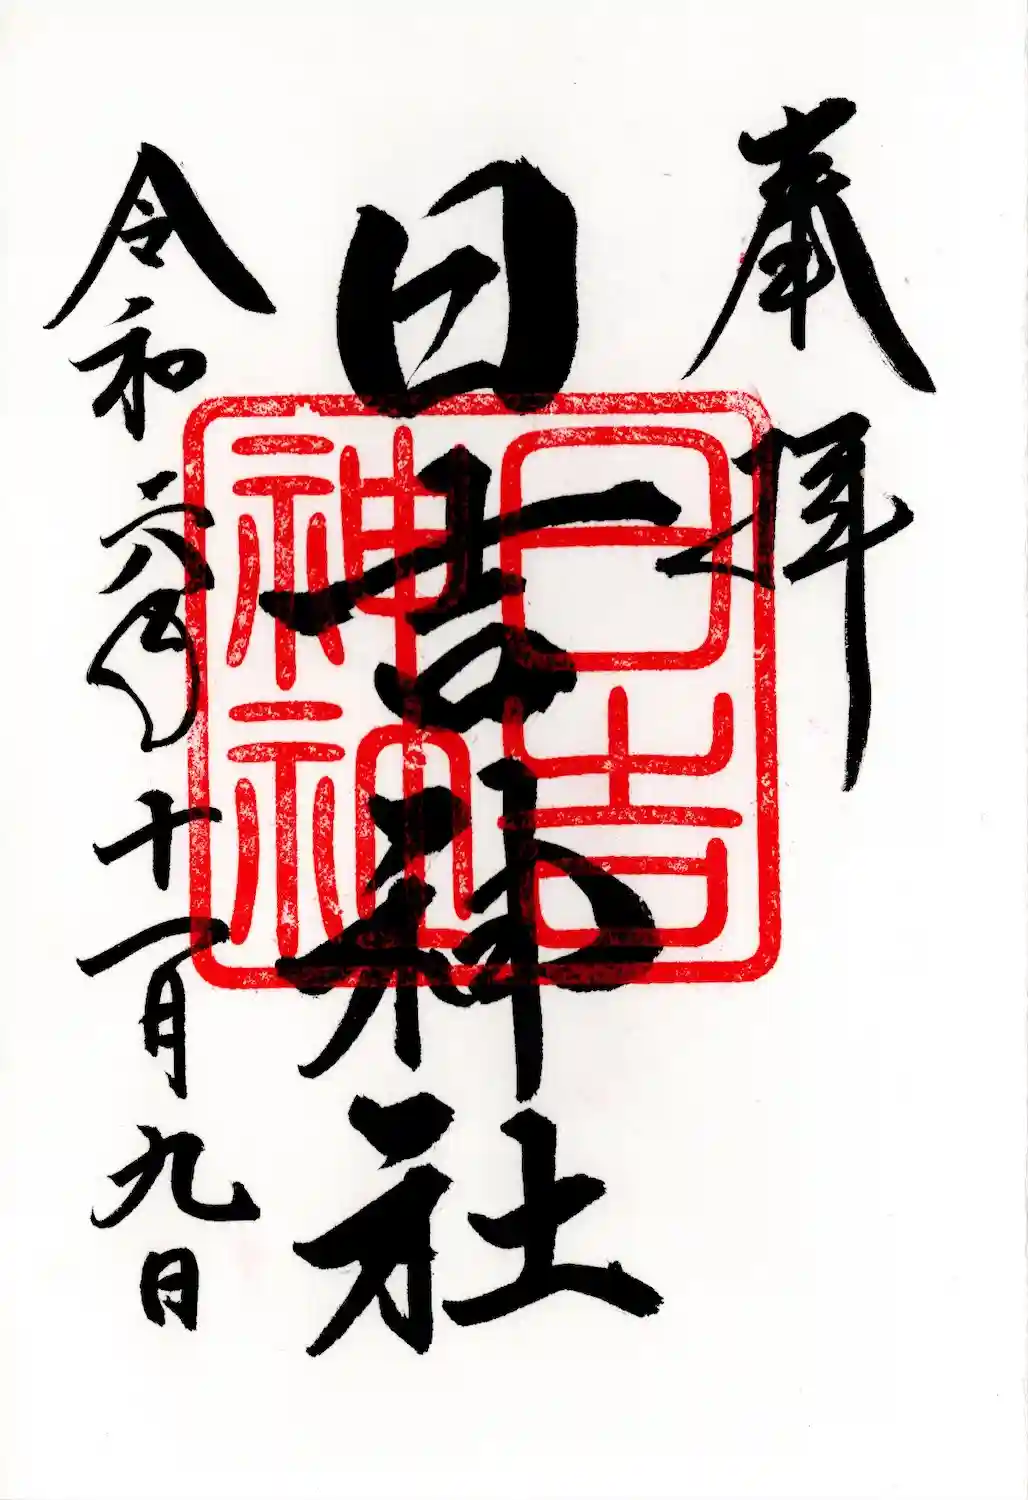 奉拝
日吉神社
令和六年十一月九日
日吉
神社